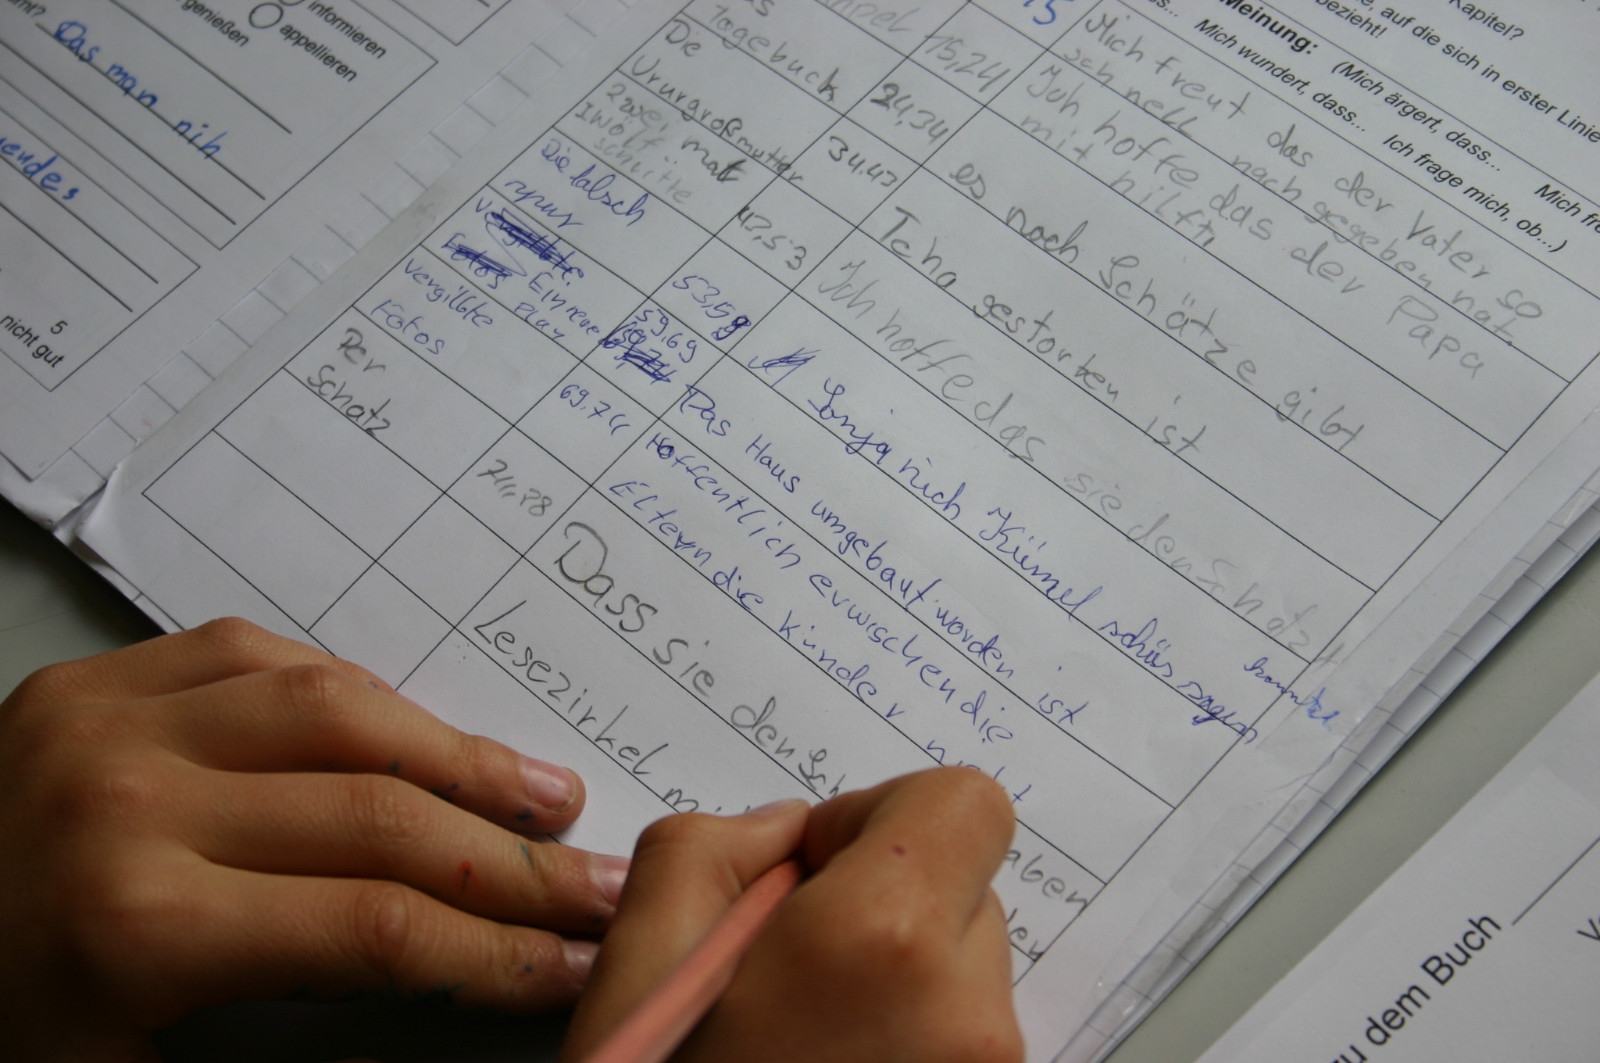 informieren
genießen
appellieren
Das man nih
5
nicht gut
Kapitel?
auf die sich in erster Linie
bezieht!
Meinung: (Mich ärgert, dass... Mich
Mich wundert, dass... Ich frage mich, ob...)
15,24
Mich freut das der Vater so
schnell nach gegeben hat.
Tagebuch
24,34
Ich hoffe das der Papa
mit hilft.
Die
Ururgroßmutter
34,43
es noch Schätze gibt
zwei mal
zwölf
schritte
43,53
Tcha gestorben ist
Die falsch
spur
53,59
Ich hoffe das sie den Schatz
Ein neue
Play
59,69
Sonja nich Kümel schüs sagen
konnte
vergillbte
Fotos
69,74
Das Haus umgebaut worden ist
Hoffentlich erwischen die
Eltern die kinder nicht
Der
Schatz
74,78
Dass sie den Sch
aben
Lesezirkel mi
der
zu dem Buch